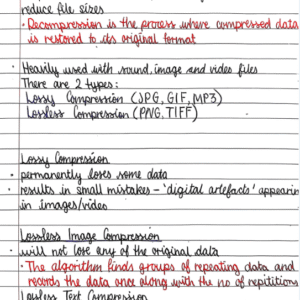 reduce file sizes
• Decompression is the process where compressed data
is restored to its original format
• Heavily used with sound, image and video files
There are 2 types:
Lossy Compression (JPG, GIF, MP3)
Lossless Compression (PNG, TIFF)
Lossy Compression
• permanently loses some data
• results in small mistakes - 'digital artefacts' appearin
in images/video
Lossless Image Compression
• will not lose any of the original data
• The algorithm finds groups of repeating data and
records the data once along with the no of repititions
Lossless Text Compression